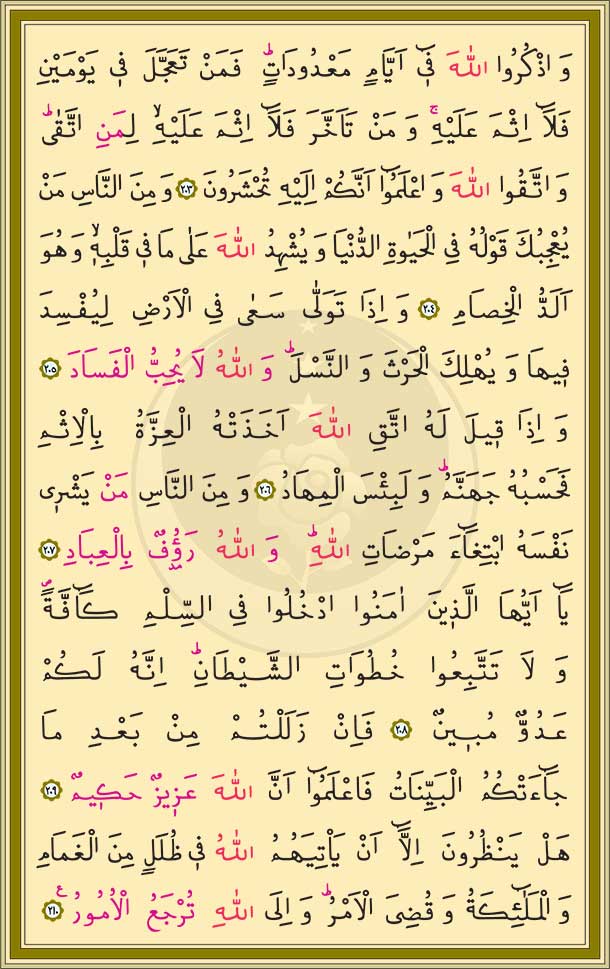 وَ اذْكُرُوا اللّٰهَ فٖٓي اَيَّامٍ مَعْدُودَاتٍؕ فَمَنْ تَعَجَّلَ فٖي يَوْمَيْنِ
فَلَٓا اِثْمَ عَلَيْهِۚ وَ مَنْ تَاَخَّرَ فَلَٓا اِثْمَ عَلَيْهِۙ لِمَنِ اتَّقٰىؕ
وَ اتَّقُوا اللّٰهَ وَ اعْلَمُٓوا اَنَّكُمْ اِلَيْهِ تُحْشَرُونَ ﴿٢٠٣﴾ وَ مِنَ النَّاسِ مَنْ
يُعْجِبُكَ قَوْلُهُ فِي الْحَيٰوةِ الدُّنْيَا وَ يُشْهِدُ اللّٰهَ عَلٰى مَا فٖي قَلْبِهٖۙ وَ هُوَ
اَلَدُّ الْخِصَامِ ﴿٢٠٤﴾ وَ اِذَا تَوَلّٰى سَعٰى فِي الْاَرْضِ لِيُفْسِدَ
فٖيهَا وَ يُهْلِكَ الْحَرْثَ وَ النَّسْلَؕ وَ اللّٰهُ لَا يُحِبُّ الْفَسَادَ ﴿٢٠٥﴾
وَ اِذَا قٖيلَ لَهُ اتَّقِ اللّٰهَ اَخَذَتْهُ الْعِزَّةُ بِالْاِثْمِ
فَحَسْبُهُ جَهَنَّمُؕ وَ لَبِئْسَ الْمِهَادُ ﴿٢٠٦﴾ وَ مِنَ النَّاسِ مَنْ يَشْرٖي
نَفْسَهُ ابْتِغَٓاءَ مَرْضَاتِ اللّٰهِؕ وَ اللّٰهُ رَؤُفٌ بِالْعِبَادِ ﴿٢٠٧﴾
يَٓا اَيُّهَا الَّذٖينَ اٰمَنُوا ادْخُلُوا فِي السِّلْمِ كَٓافَّةًࣕ
وَ لَا تَتَّبِعُوا خُطُوَاتِ الشَّيْطَانِؕ اِنَّهُ لَكُمْ
عَدُوٌّ مُبٖينٌ ﴿٢٠٨﴾ فَاِنْ زَلَلْتُمْ مِنْ بَعْدِ مَا
جَٓاءَتْكُمُ الْبَيِّنَاتُ فَاعْلَمُٓوا اَنَّ اللّٰهَ عَزٖيزٌ حَكٖيمٌ ﴿٢٠٩﴾
هَلْ يَنْظُرُونَ اِلَّٓا اَنْ يَاْتِيَهُمُ اللّٰهُ فٖي ظُلَلٍ مِنَ الْغَمَامِ
وَ الْمَلٰٓئِكَةُ وَ قُضِيَ الْاَمْرُؕ وَ اِلَى اللّٰهِ تُرْجَعُ الْاُمُورُࣖ ﴿٢١٠﴾